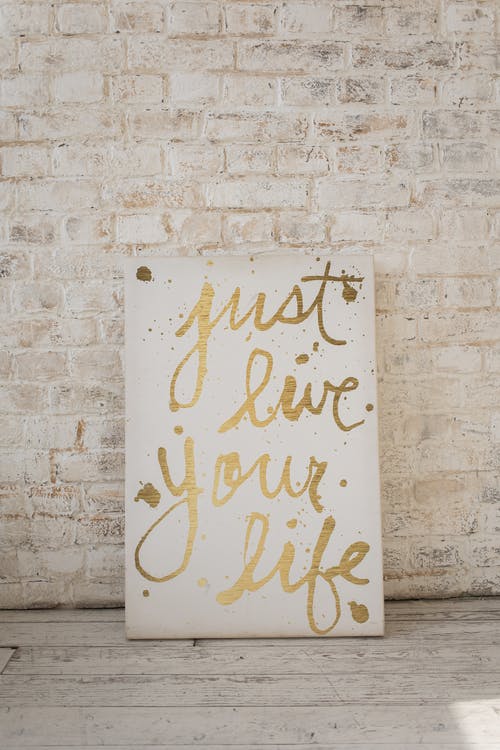 just
live
your
life